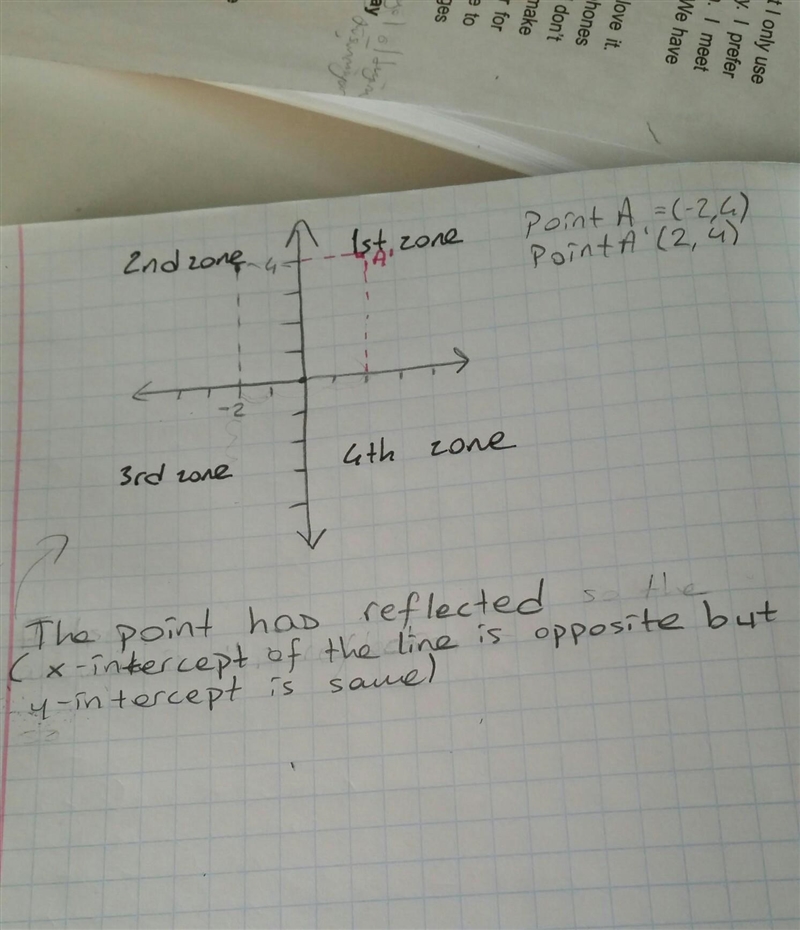 t I only use
y. I prefer
. I meet
We have
love it.
hones
don't
make
r for
e to
ges
ay
Point A = (-2,4)
Point A' (2, 4)
2nd zone
1st zone
4
A'
-2
3rd zone
4th zone
The point has reflected so the
(x-intercept of the line is opposite but
y-intercept is same)